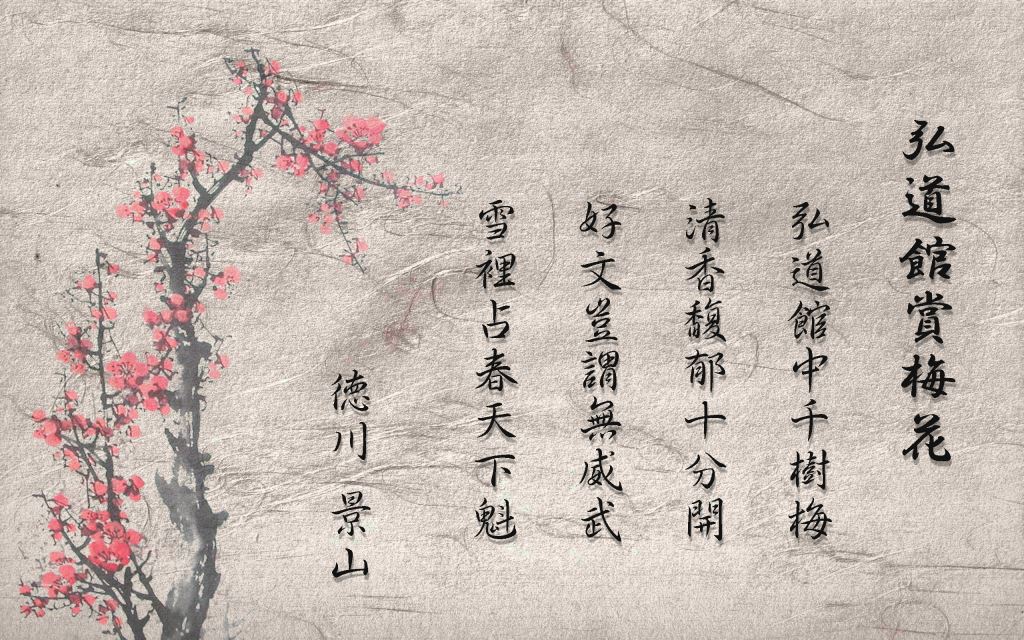 弘道館賞梅花
弘道館中千樹梅
清香馥郁十分開
好文豈謂無威武
雪裡占春天下魁
徳川 景山